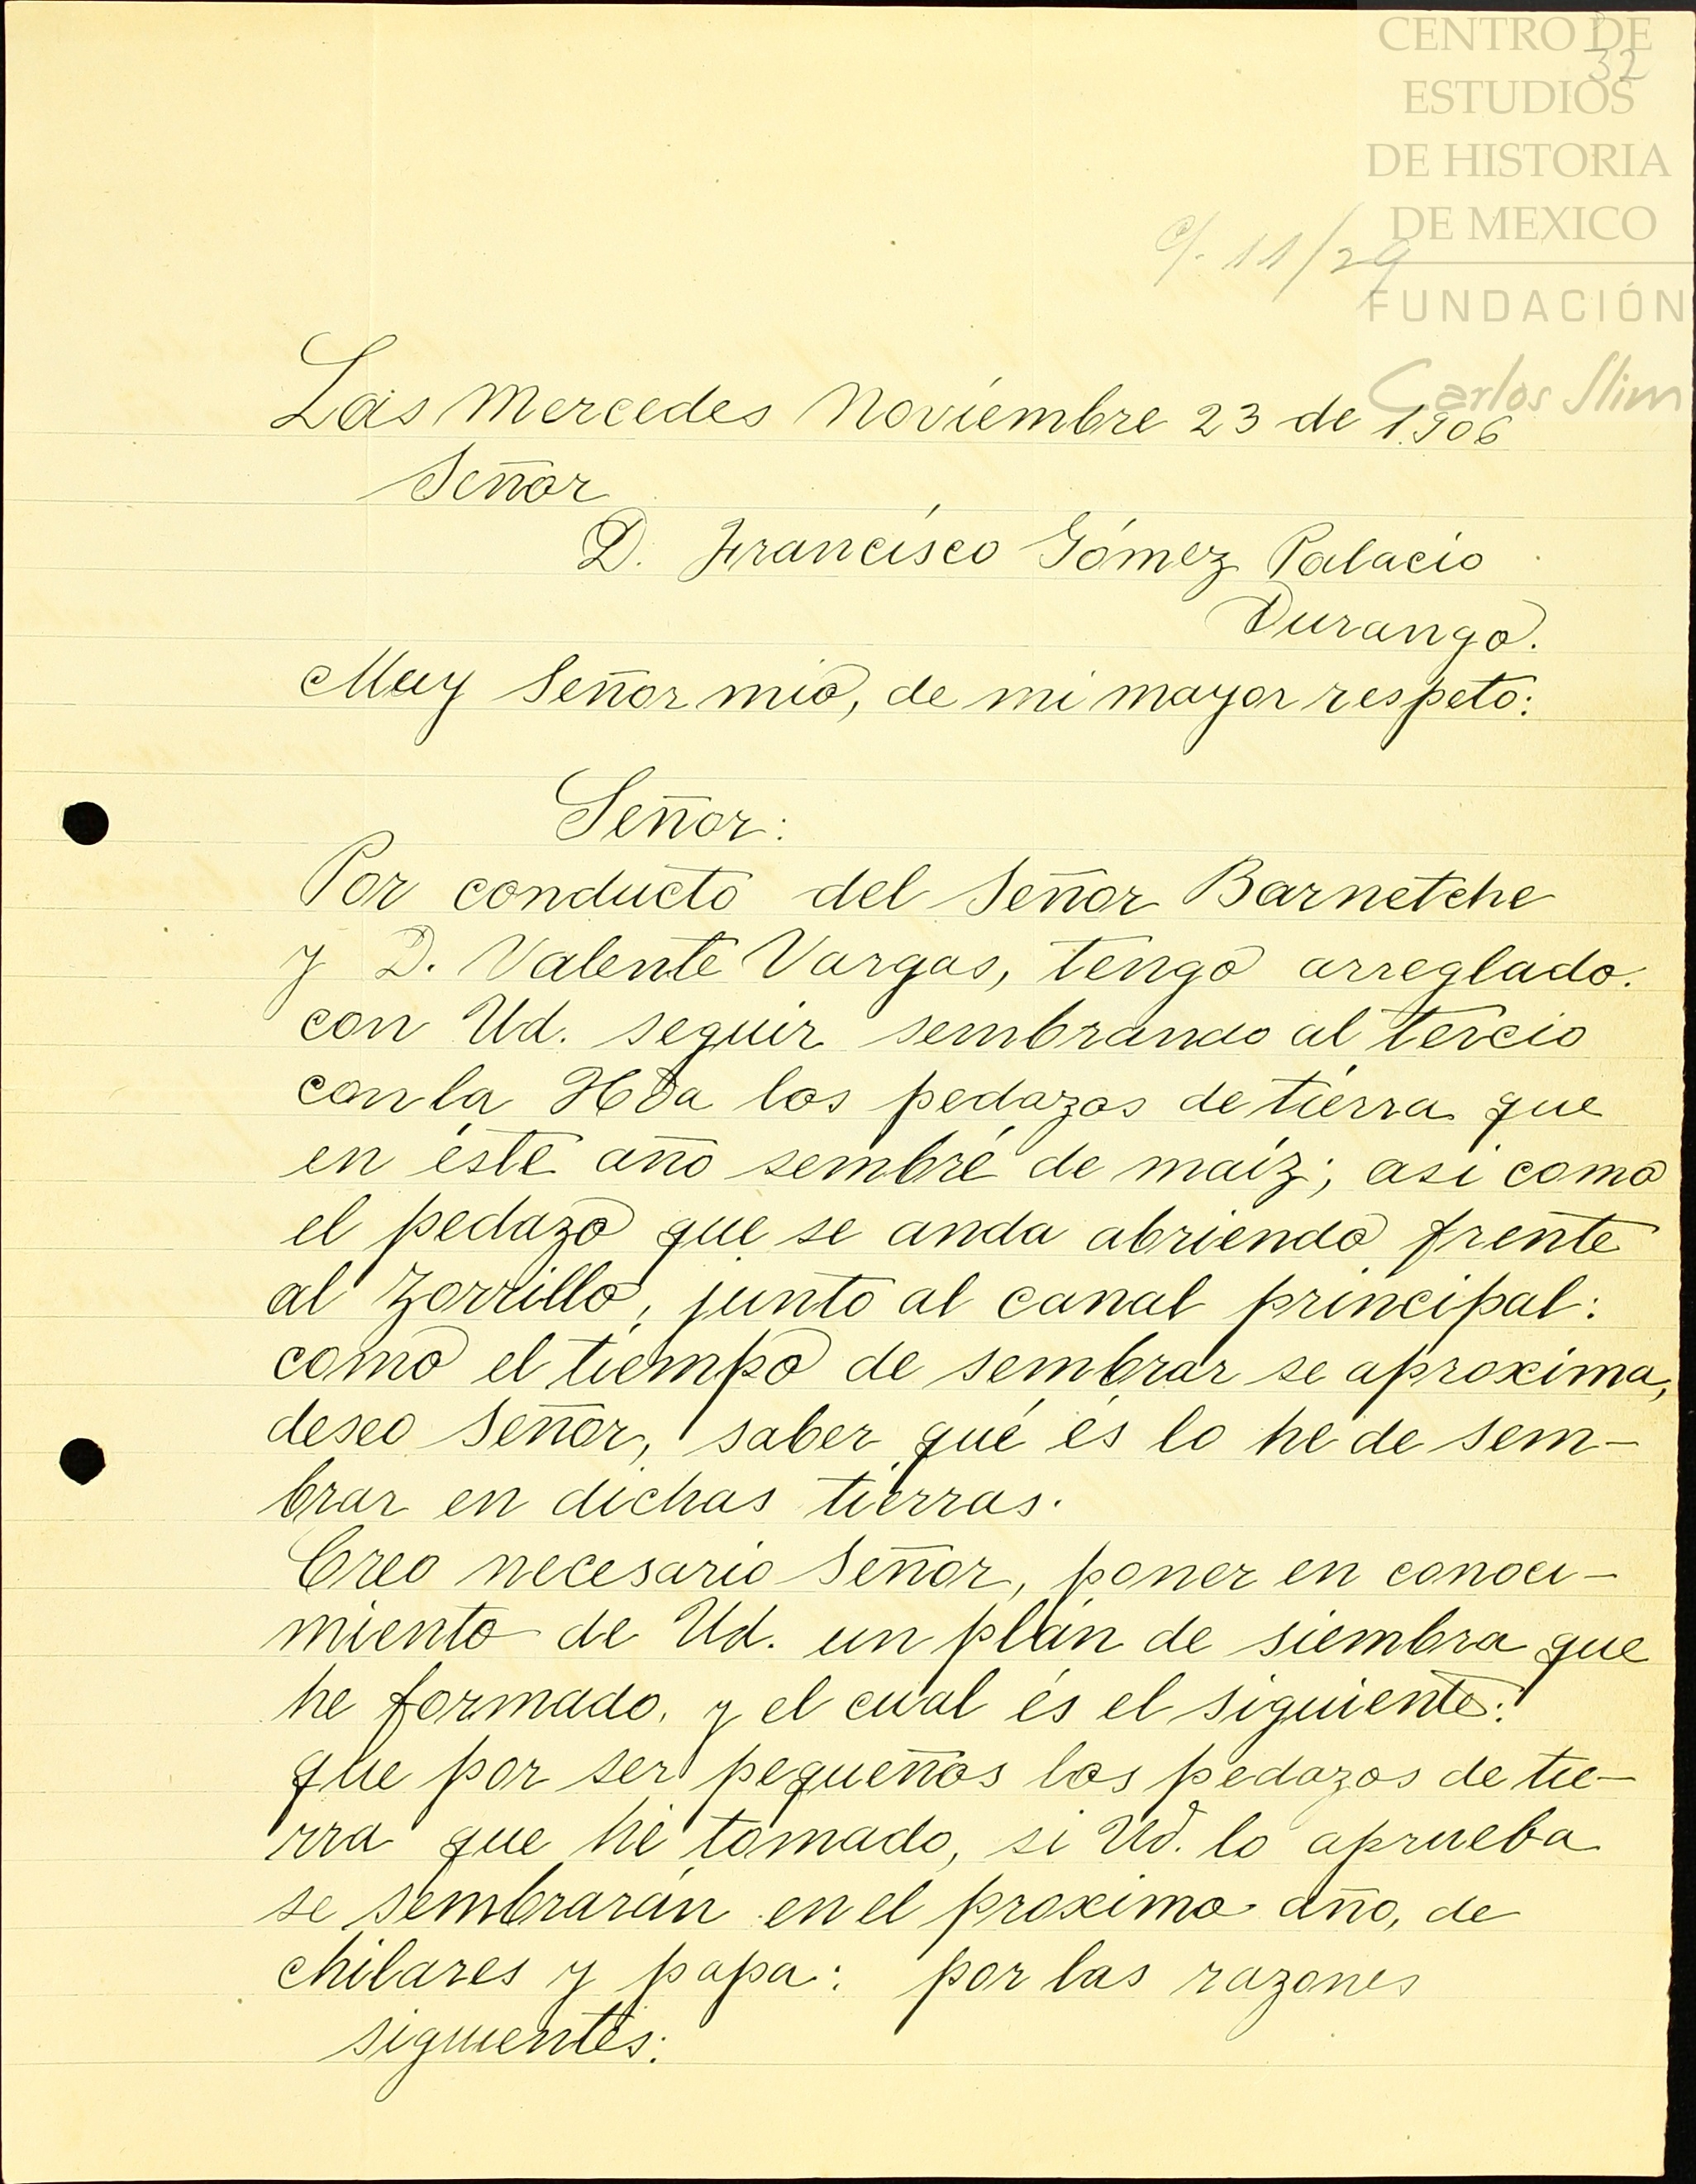 CENTRO DE
32
ESTUDIOS
DE HISTORIA
DE MEXICO
c/. 11/29
FUNDACIÓN
Carlos Slim
Las Mercedes Noviembre 23 de 1906
Señor
D. Francisco Gómez Palacio
Durango.
Muy Señor mio, de mi mayor respeto:
Señor:
Por conducto del Señor Barnetche
y D. Valente Vargas, tengo arreglado.
con Ud. seguir sembrando al tercio
con la Hda los pedazos de tierra que
en éste año sembré de maíz; asi como
el pedazo que se anda abriendo frente
al Zorrillo, junto al canal principal:
como el tiempo de sembrar se aproxima,
deseo Señor, saber qué és lo he de sem-
brar en dichas tierras.
Creo necesario Señor, poner en conoci-
miento de Ud. un plán de siembra que
he formado, y el cual és el siguiente:
que por ser pequeños los pedazos de tie-
rra que hé tomado, si Ud. lo aprueba
se sembrarán en el proximo año, de
chilares y papa: por las razones
siguientes: